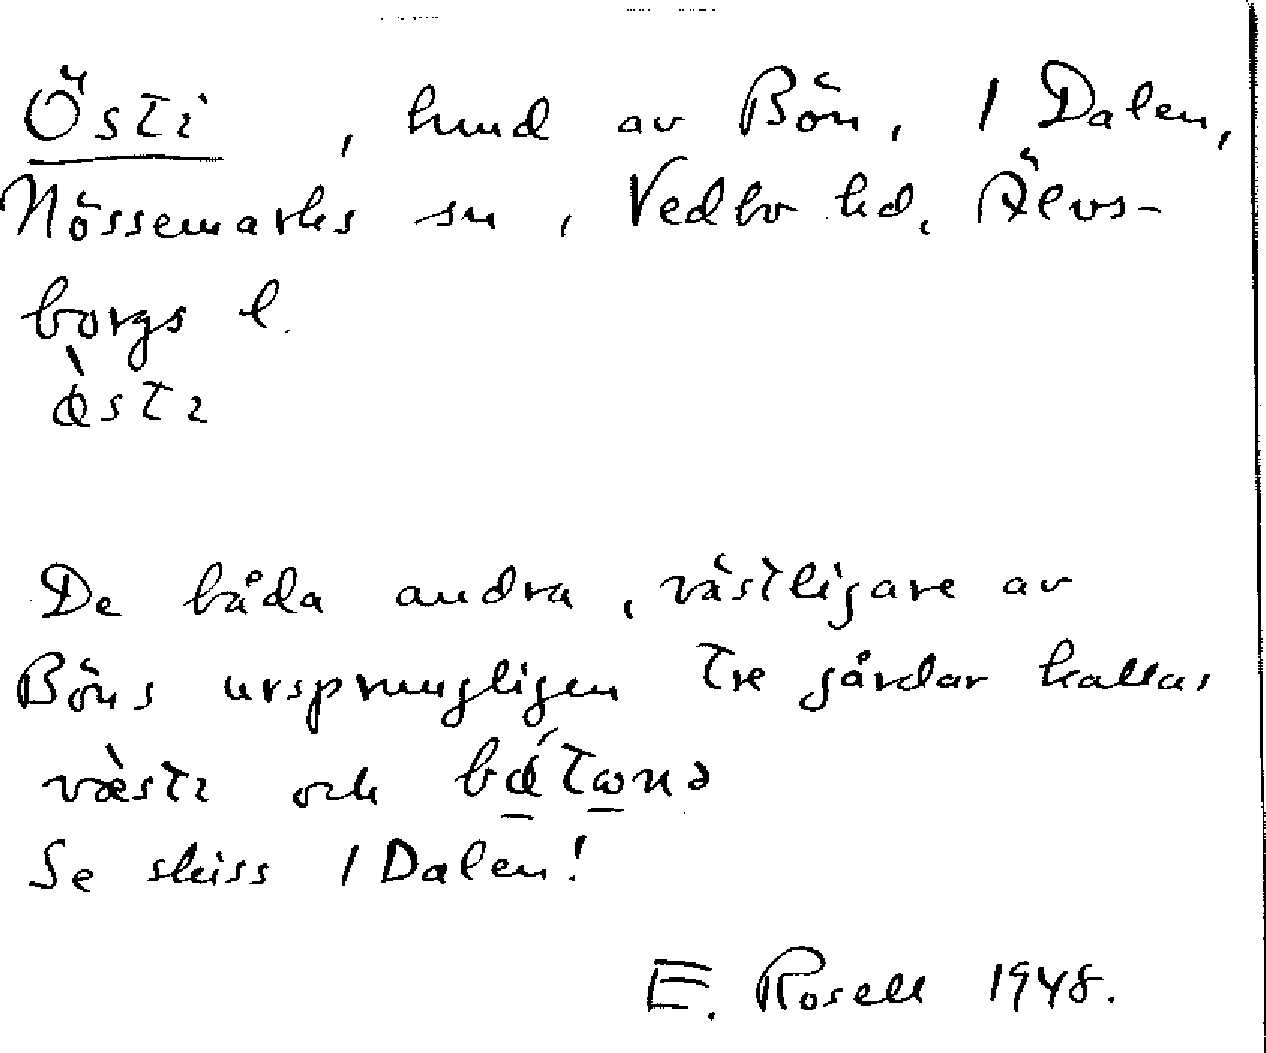 Östi, hmd av Bön, 1 Dalen,
Nössemarks sn, Vedbo hd, Älvs-
borgs l.
De båda andra, västligare av
Böns ursprungligen tre gårdar kallas
och
Se skiss 1 Dalen!
E. Rosell 1948.